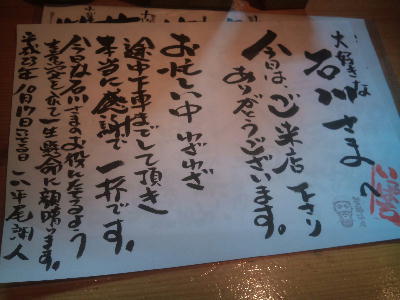 大好きな
石川さまへ
今日は、ご来店下さり
ありがとうございます。
お忙しい中 わざわざ
途中下車までして頂き
本当に感謝で一杯です。
今日は石川さまのお役に立てるよう
一生懸命に頑張ります。
平成23年10月17日